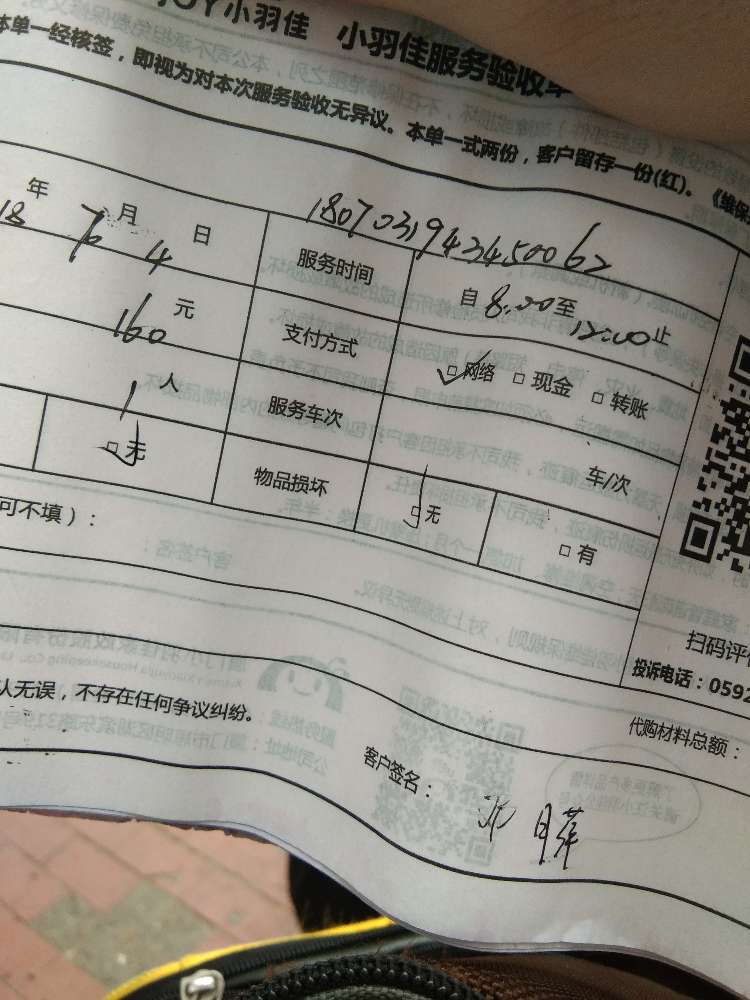 JOY小羽佳 小羽佳服务验收单
本单一经核签，即视为对本次服务验收无异议。本单一式两份，客户留存一份(红)。《维保
1807031943450062
18年7月4日 服务时间 自8:00至12:00止
160元 支付方式 网络 现金 转账
1人 服务车次 车/次
无 物品损坏 无 有
可不填）：
扫码评价
投诉电话：0592
人无误，不存在任何争议纠纷。
代购材料总额：
客户签名：